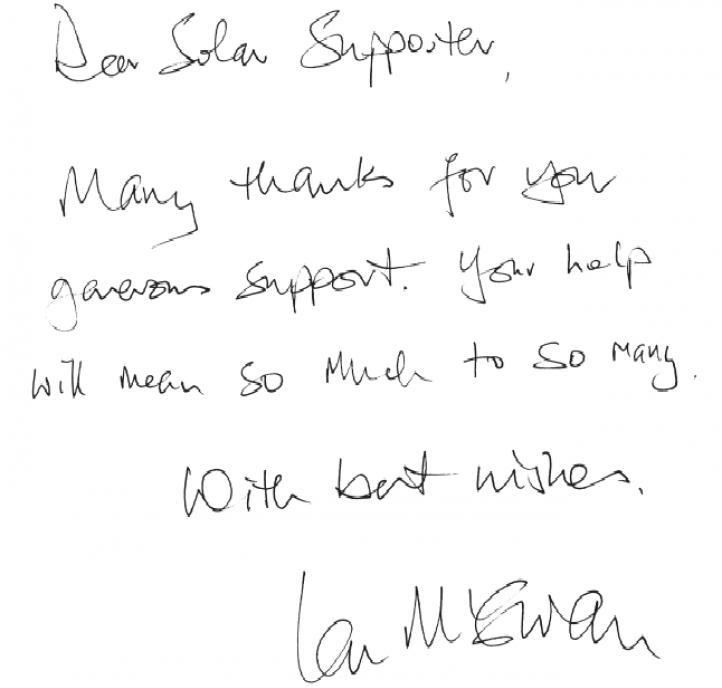 Dear Solar Supporter,
Many thanks for you
generous support. Your help
will mean so much to so many.
With best wishes.
Ian McEwan